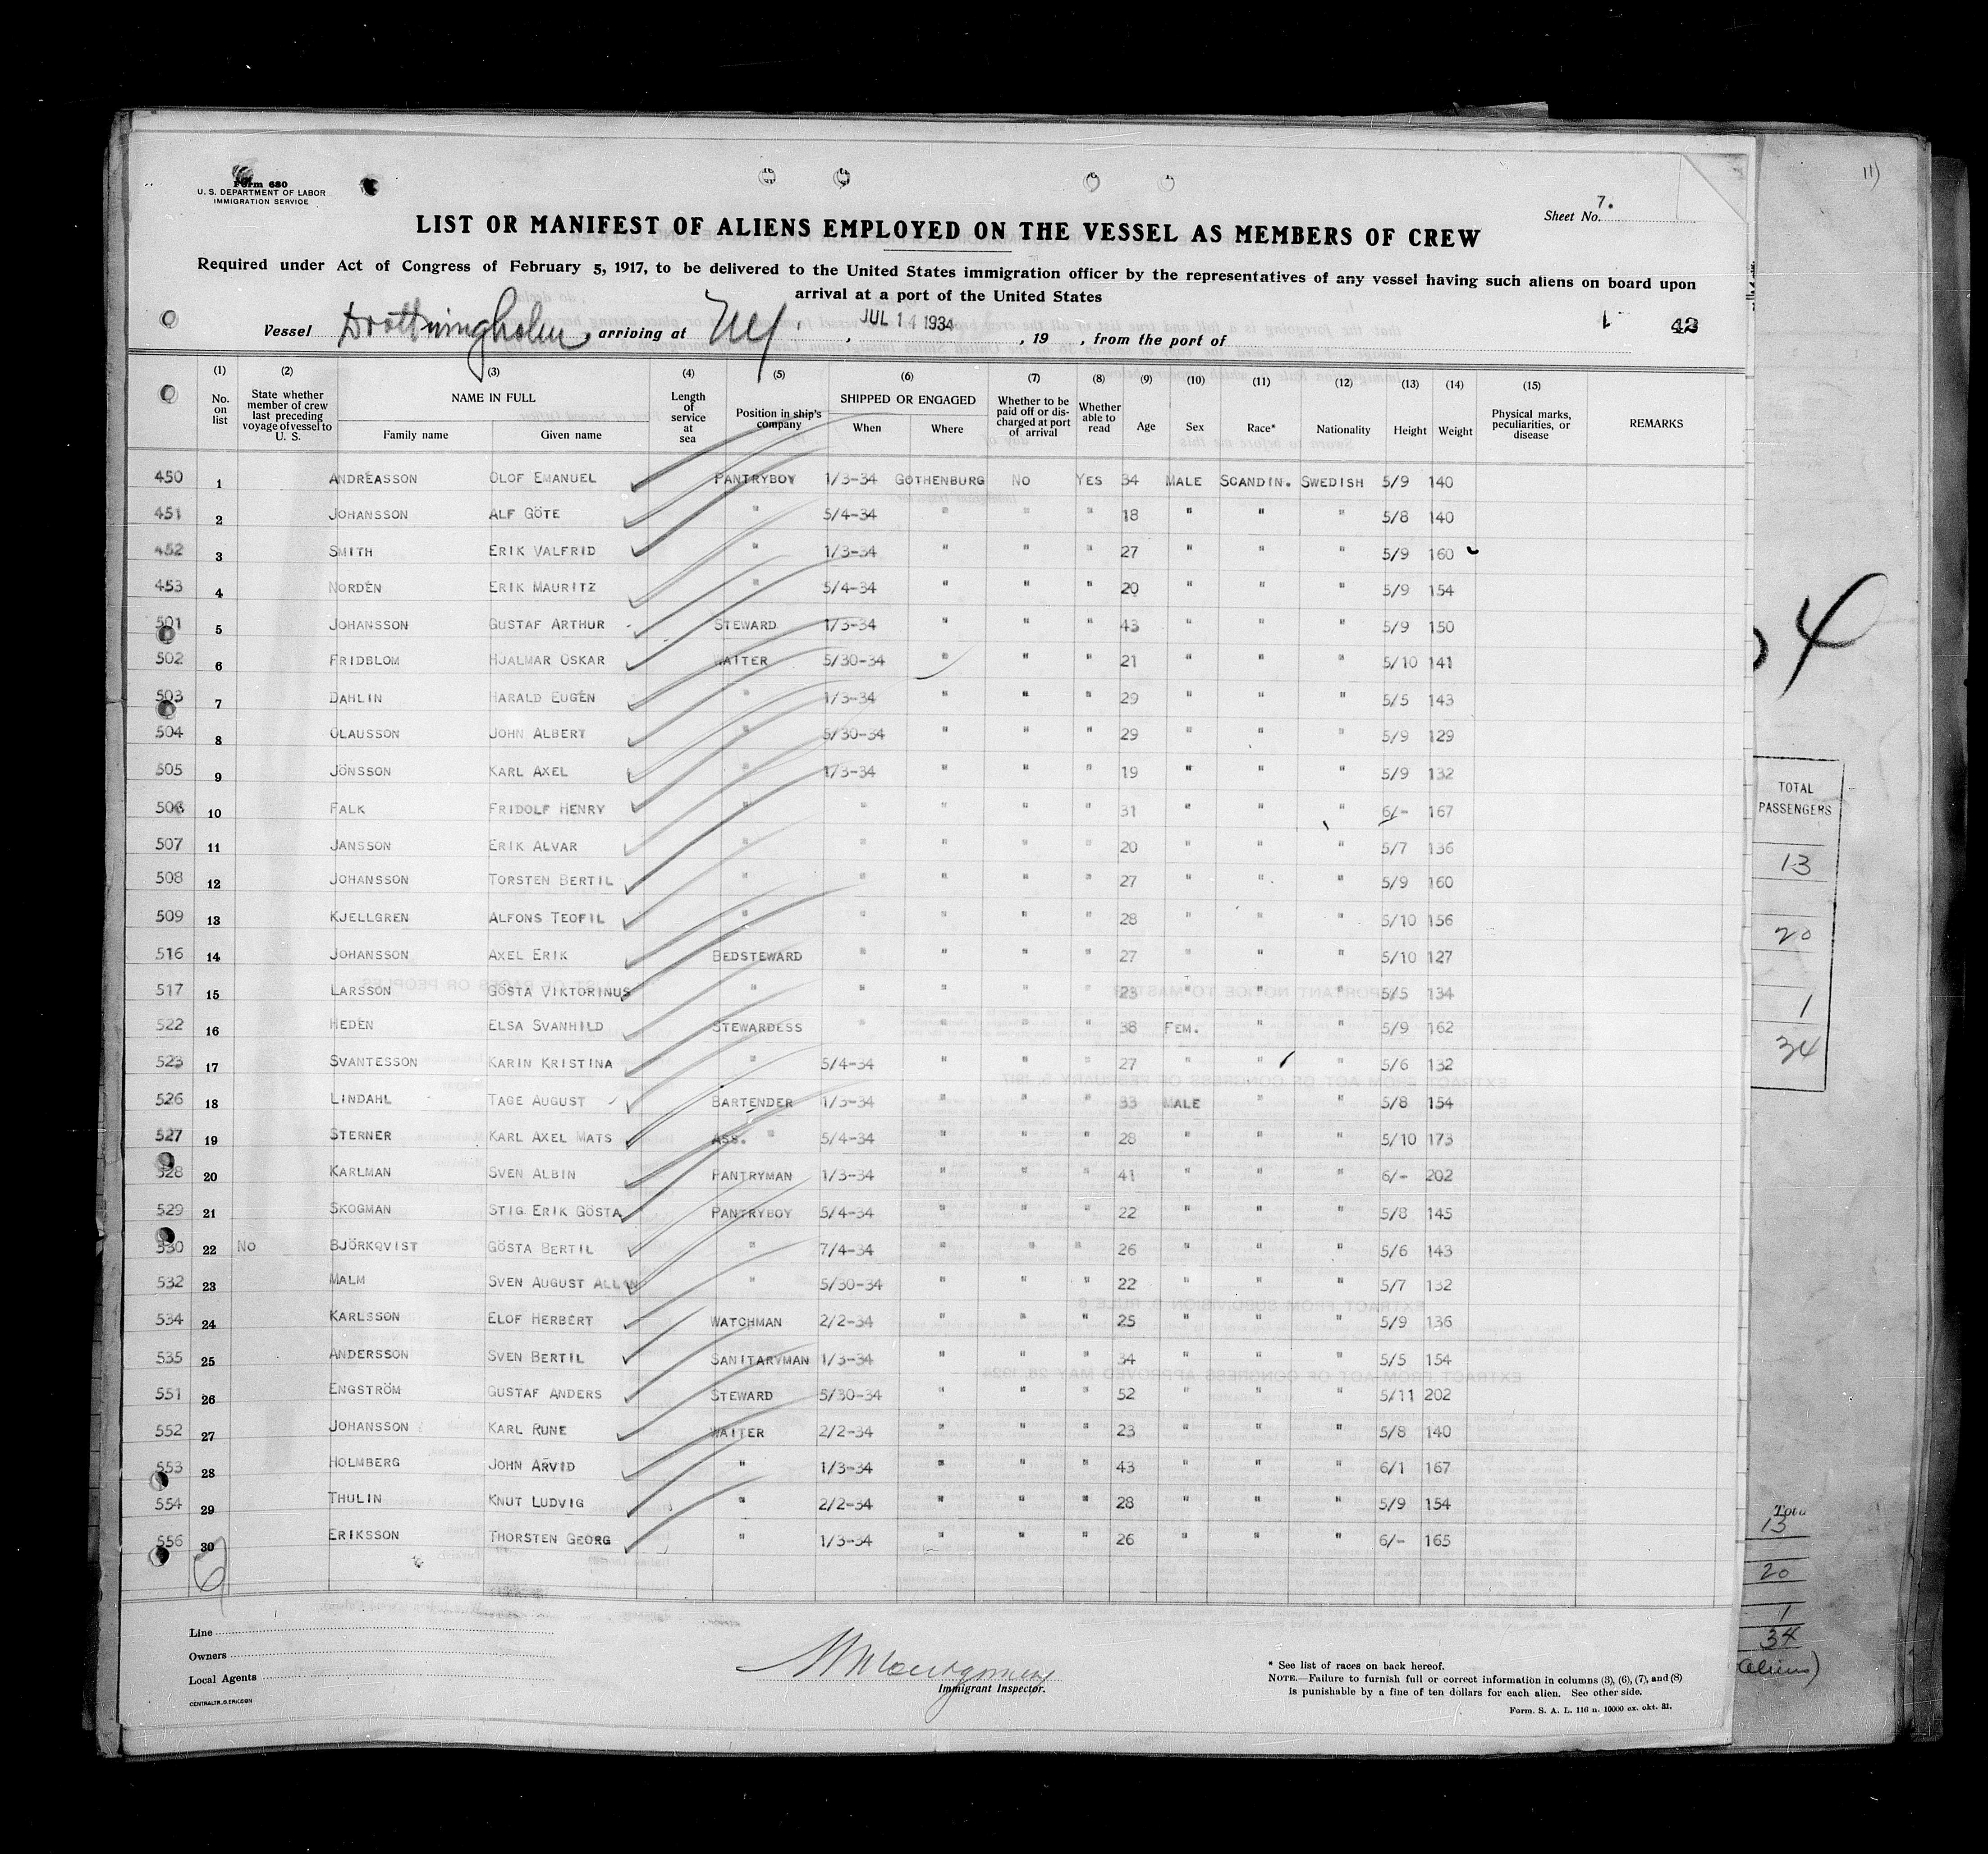 11)
Form 680
U. S. DEPARTMENT OF LABOR
IMMIGRATION SERVICE
Sheet No. 7.
LIST OR MANIFEST OF ALIENS EMPLOYED ON THE VESSEL AS MEMBERS OF CREW
Required under Act of Congress of February 5, 1917, to be delivered to the United States immigration officer by the representatives of any vessel having such aliens on board upon
arrival at a port of the United States
Vessel Drottningholm, arriving at NY, JUL 14 1934, 19 , from the port of 42
(1) (2) (3) (4) (5) (6) (7) (8) (9) (10) (11) (12) (13) (14) (15)
No. on list State whether member of crew last preceding voyage of vessel to U. S. NAME IN FULL Family name Given name Length of service at sea Position in ship's company SHIPPED OR ENGAGED When Where Whether to be paid off or discharged at port of arrival Whether able to read Age Sex Race* Nationality Height Weight Physical marks, peculiarities, or disease REMARKS
450 1 ANDRÉASSON OLOF EMANUEL PANTRYBOY 1/3-34 GOTHENBURG NO YES 34 MALE SCANDIN. SWEDISH 5/9 140
451 2 JOHANSSON ALF GÖTE " 5/4-34 " " " 18 " " " 5/8 140
452 3 SMITH ERIK VALFRID " 1/3-34 " " " 27 " " " 5/9 160
453 4 NORDÉN ERIK MAURITZ " 5/4-34 " " " 20 " " " 5/9 154
501 5 JOHANSSON GUSTAF ARTHUR STEWARD 1/3-34 " " " 43 " " " 5/9 150
502 6 FRIDBLOM HJALMAR OSKAR WAITER 5/30-34 " " " 21 " " " 5/10 141
503 7 DAHLIN HARALD EUGÉN " 1/3-34 " " " 29 " " " 5/5 143
504 8 OLAUSSON JOHN ALBERT " 5/30-34 " " " 29 " " " 5/9 129
505 9 JÖNSSON KARL AXEL " 1/3-34 " " " 19 " " " 5/9 132
506 10 FALK FRIDOLF HENRY " " " " " 31 " " " 6/- 167
507 11 JANSSON ERIK ALVAR " " " " " 20 " " " 5/7 136
508 12 JOHANSSON TORSTEN BERTIL " " " " " 27 " " " 5/9 160
509 13 KJELLGREN ALFONS TEOFIL " " " " " 28 " " " 5/10 156
516 14 JOHANSSON AXEL ERIK BEDSTEWARD " " " " 27 " " " 5/10 127
517 15 LARSSON GÖSTA VIKTORINUS " " " " " 23 " " " 5/5 134
522 16 HEDÉN ELSA SVANHILD STEWARDESS " " " " 38 FEM. " " 5/9 162
523 17 SVANTESSON KARIN KRISTINA " 5/4-34 " " " 27 " " " 5/6 132
526 18 LINDAHL TAGE AUGUST BARTENDER 1/3-34 " " " 33 MALE " " 5/8 154
527 19 STERNER KARL AXEL MATS ASS. " 5/4-34 " " " 28 " " " 5/10 173
528 20 KARLMAN SVEN ALBIN PANTRYMAN 1/3-34 " " " 41 " " " 6/- 202
529 21 SKOGMAN STIG ERIK GÖSTA PANTRYBOY 5/4-34 " " " 22 " " " 5/8 145
530 22 NO BJÖRKQVIST GÖSTA BERTIL " 7/4-34 " " " 26 " " " 5/6 143
532 23 MALM SVEN AUGUST ALLAN " 5/30-34 " " " 22 " " " 5/7 132
534 24 KARLSSON ELOF HERBERT WATCHMAN 2/2-34 " " " 25 " " " 5/9 136
535 25 ANDERSSON SVEN BERTIL SANITARYMAN 1/3-34 " " " 34 " " " 5/5 154
551 26 ENGSTRÖM GUSTAF ANDERS STEWARD 5/30-34 " " " 52 " " " 5/11 202
552 27 JOHANSSON KARL RUNE WAITER 2/2-34 " " " 23 " " " 5/8 140
553 28 HOLMBERG JOHN ARVID " 1/3-34 " " " 43 " " " 6/1 167
554 29 THULIN KNUT LUDVIG " 2/2-34 " " " 28 " " " 5/9 154
556 30 ERIKSSON THORSTEN GEORG " 1/3-34 " " " 26 " " " 6/- 165
Line
Owners
Local Agents
CENTRALTR, G. ERICSON
M Montgomery
Immigrant Inspector.
* See list of races on back hereof.
NOTE.—Failure to furnish full or correct information in columns (3), (6), (7), and (8)
is punishable by a fine of ten dollars for each alien. See other side.
Form. S. A. L. 116 n. 10000 ex. okt. 31.
4
TOTAL
PASSENGERS
13
20
1
34
Total
13
20
1
34
(Aliens)